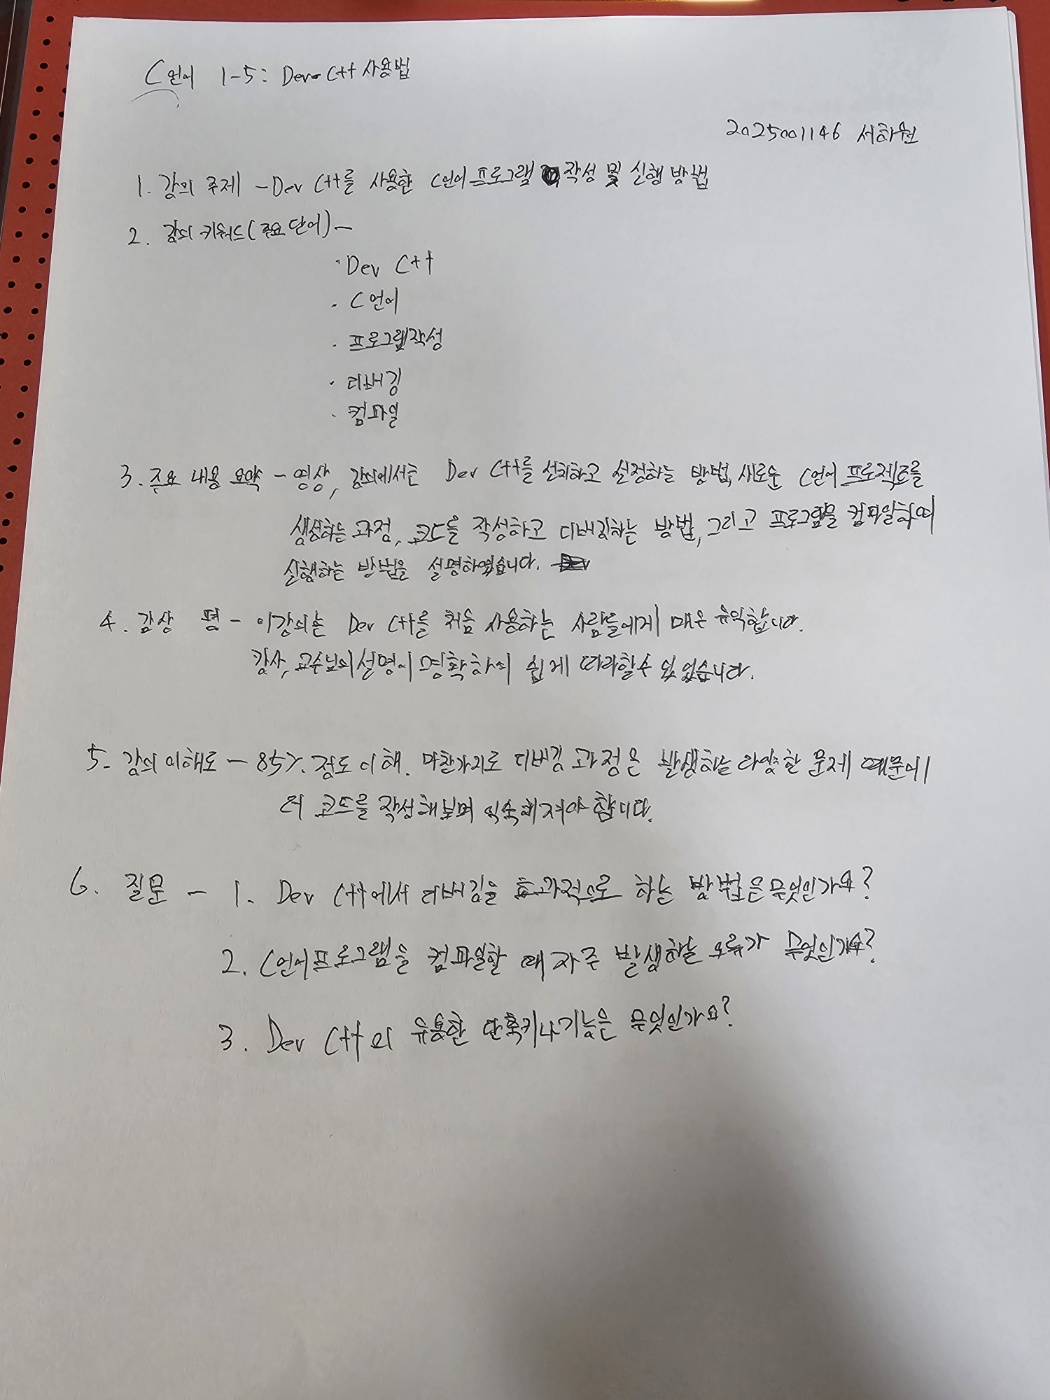 C언어 1-5: Dev C++ 사용법
2025001146 서하원
1. 강의 주제 - Dev C++를 사용한 C언어 프로그램 작성 및 실행 방법
2. 강의 키워드(주요 단어) -
· Dev C++
· C언어
· 프로그램작성
· 디버깅
· 컴파일
3. 주요 내용 요약 - 영상, 강의에서는 Dev C++를 설치하고 설정하는 방법, 새로운 C언어 프로젝트를
생성하는 과정, 코드를 작성하고 디버깅하는 방법, 그리고 프로그램을 컴파일하여
실행하는 방법을 설명하였습니다.
4. 감상 평 - 이강의는 Dev C++를 처음 사용하는 사람들에게 매운 유익합니다.
강사, 교수님의 설명이 명확하여 쉽게 따라할수 있었습니다.
5. 강의 이해도 - 85% 정도 이해. 마찬가지로 디버깅 과정은 발생하는 다양한 문제 때문에
더 코드를 작성해보며 익숙해져야 합니다.
6. 질문 - 1. Dev C++에서 디버깅을 효과적으로 하는 방법은 무엇인가요?
2. C언어프로그램을 컴파일할 때 자주 발생하는 오류가 무엇인가요?
3. Dev C++의 유용한 단축키나 기능은 무엇인가요?